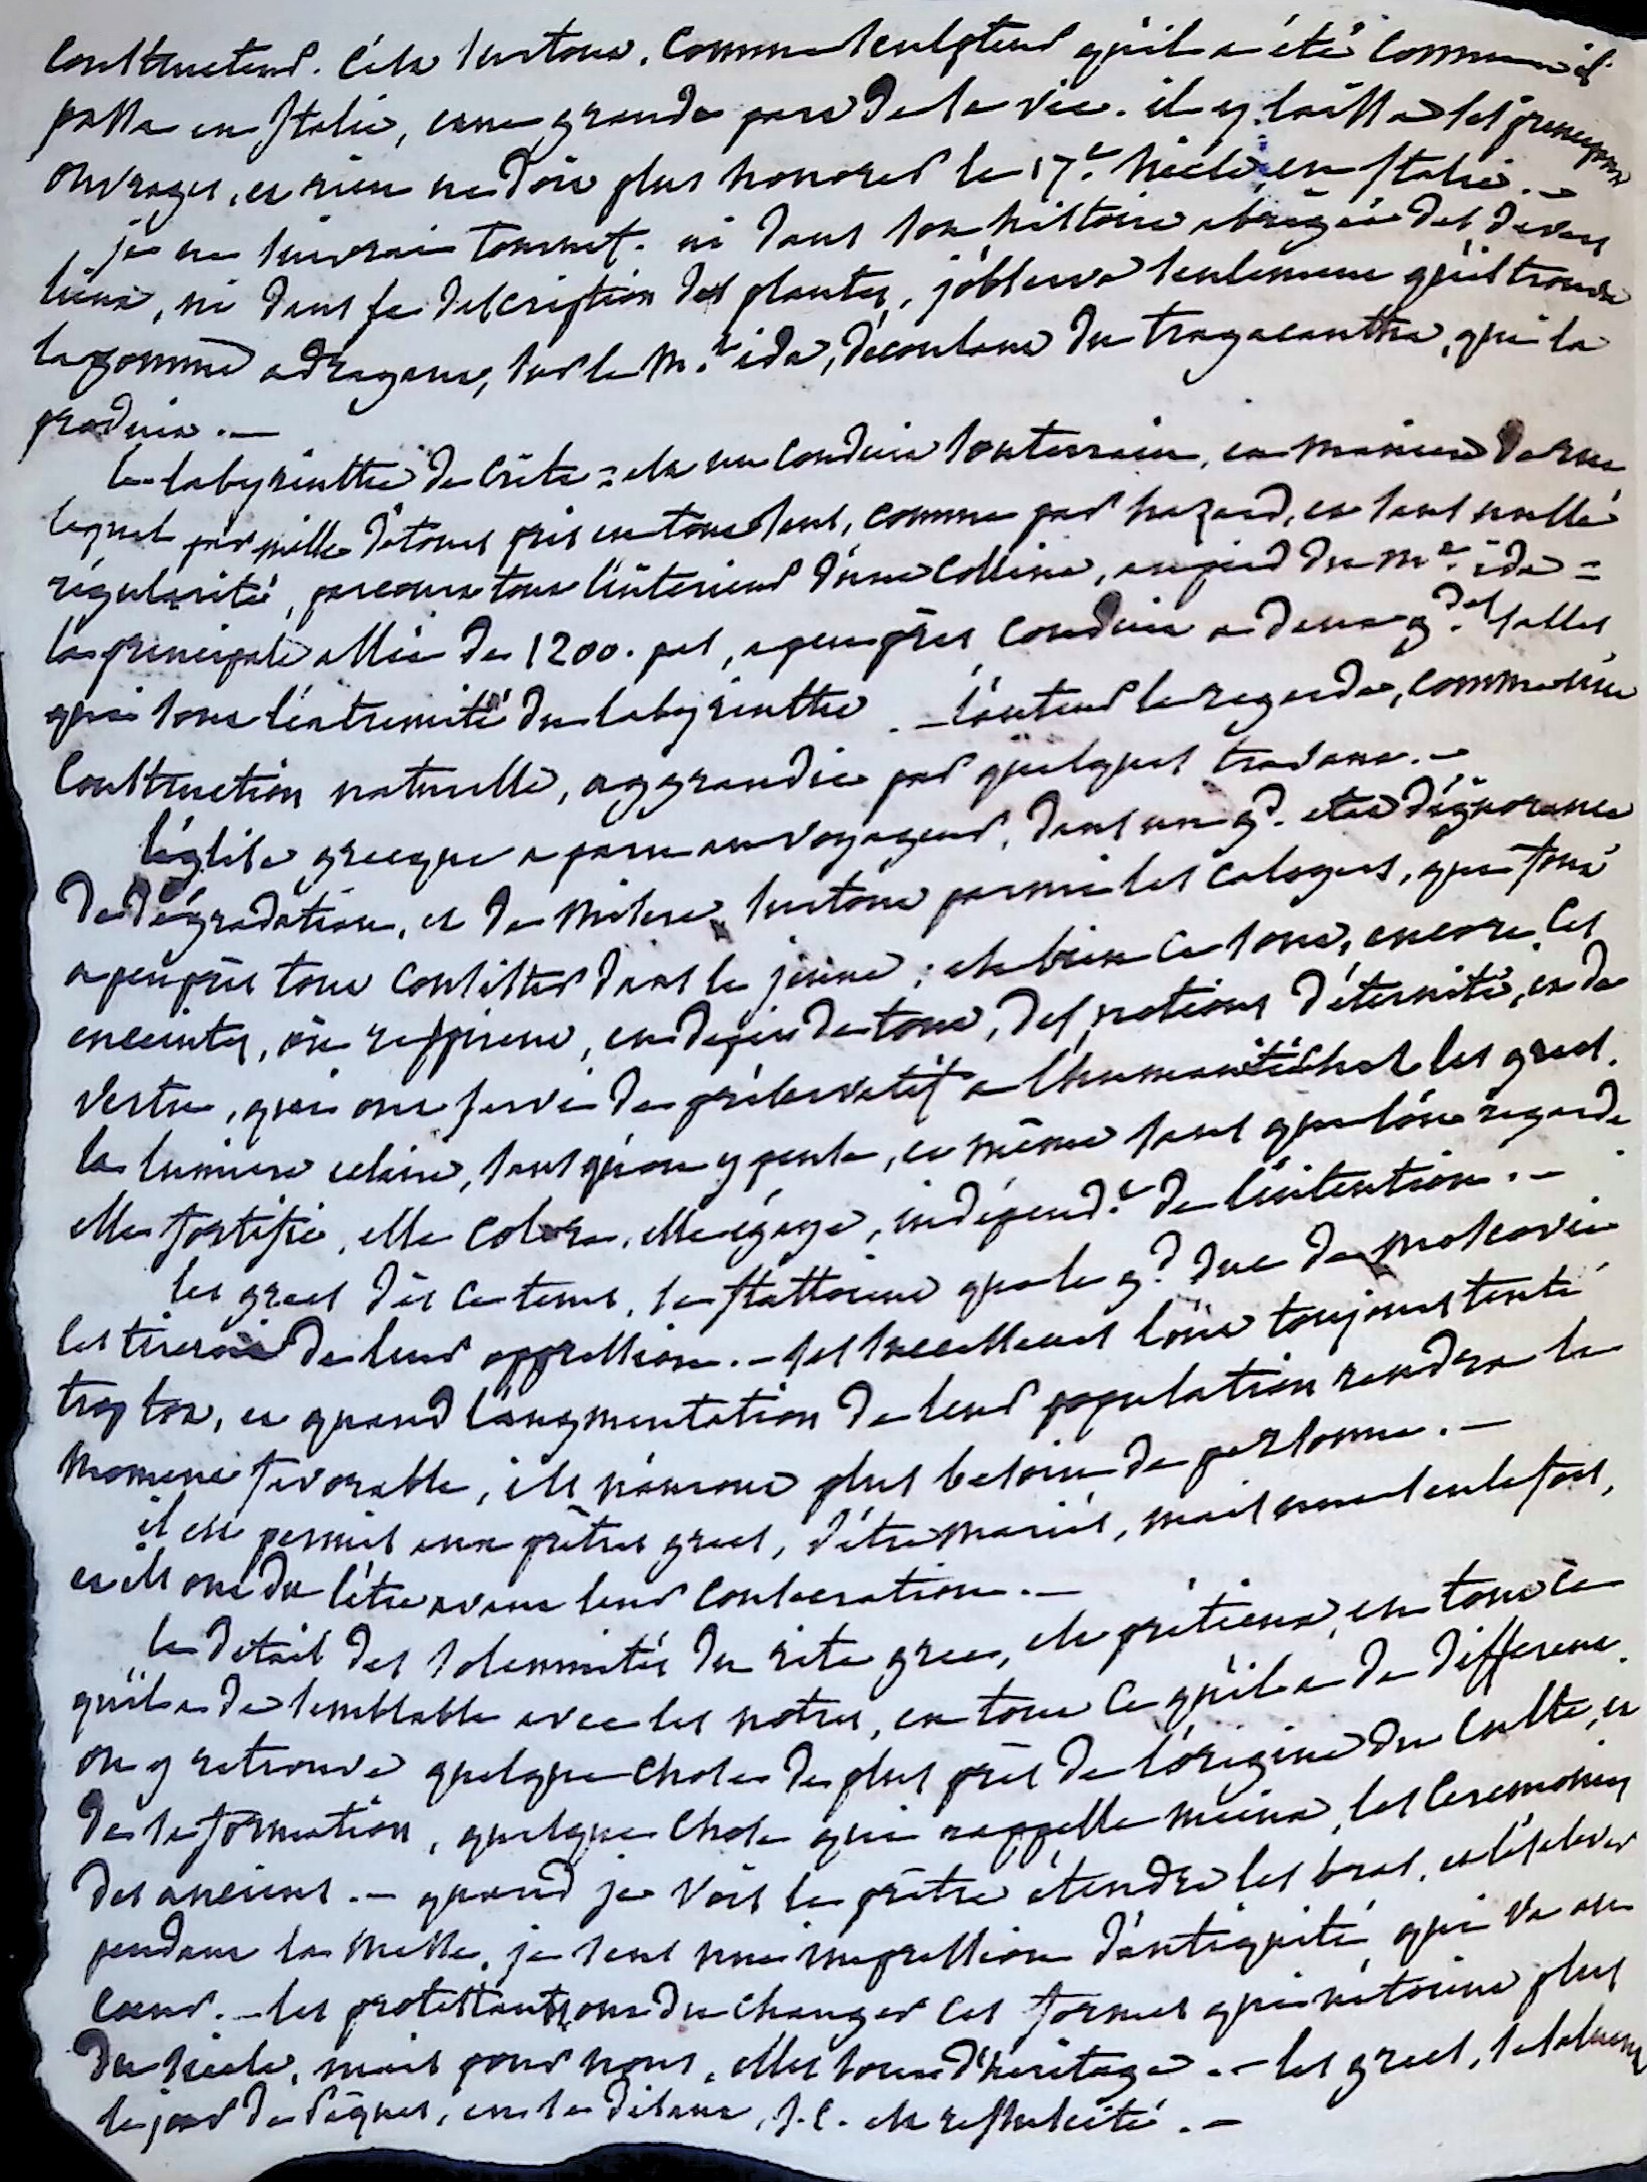 constructeur. c'est surtout, comme sculpteur qu'il a été connu. il
passa en Italie, une grande part de sa vie. il y laissa ses principaux
ouvrages, et rien ne doit plus honorer le 17.e siècle, en Italie. —
je ne suivrai Tournef. ni dans son histoire abrégée des divers
lieux, ni dans sa description des plantes, j'observe seulement qu'il trouva
la gomme adragant, sur le M.t ida, découlant du tragacantha, qui la
produit. —
le labyrinthe de Crète = est un conduit souterrain, en maniere de rue
lequel par mille détours pris en tout sens, comme par hazard, et sans nulle
régularité, parcourt tout l'intérieur d'une colline, au pied du M.t ida =
la principale allée de 1200. pas, a peu près conduit a deux g.des salles
qui sont l'extremité du labyrinthe. — l'auteur le regarde, comme une
construction naturelle, aggrandie par quelques travaux. —
l'église grecque a paru au voyageur, dans un g.d état d'ignorance
de dégradation, et de misere, surtout parmi les caloyers, qui font
a peu près tout consister dans le jeune ; eh bien ce sont, encore ces
enceintes, où respirent, en dépit de tout, des notions d'éternité, et de
vertu, qui ont servi de préservatif a l'humanité chez les grecs.
la lumiere éclaire, sans qu'on y pense, et même sans que l'on regarde
elle fortifie, elle colore, elle égaye, indépend.t de l'intention. —
les grecs dès ce tems, se flattoient que le g.d duc de Moscovie
les tireroit de leur oppression. — ses successeurs l'ont toujours tenté
trop tôt, et quand l'augmentation de leur population rendra le
moment favorable, ils n'auront plus besoin de personne. —
il est permis aux prêtres grecs, d'être mariés, mais une seule fois,
et ils ont du l'être avant leur consecration. —
le detail des solemnités du rite grec, est prétieux, en tout ce
qu'il a de semblable avec les notres, en tout ce qu'il a de different.
on y retrouve quelque chose de plus près de l'origine du culte, et
de sa formation, quelque chose qui rappelle mieux, les ceremonies
des anciens. — quand je vois le prêtre étendre les bras, et les elever
pendant la messe, je sens une impression d'antiquité qui va au
cœur. — les protestants, ont du changer ces formes qui n'étoient plus
du siecle, mais pour nous, elles sont d'héritage. — les grecs, se saluent
le jour de Pâques, en se disant, J. C. est ressuscité. —